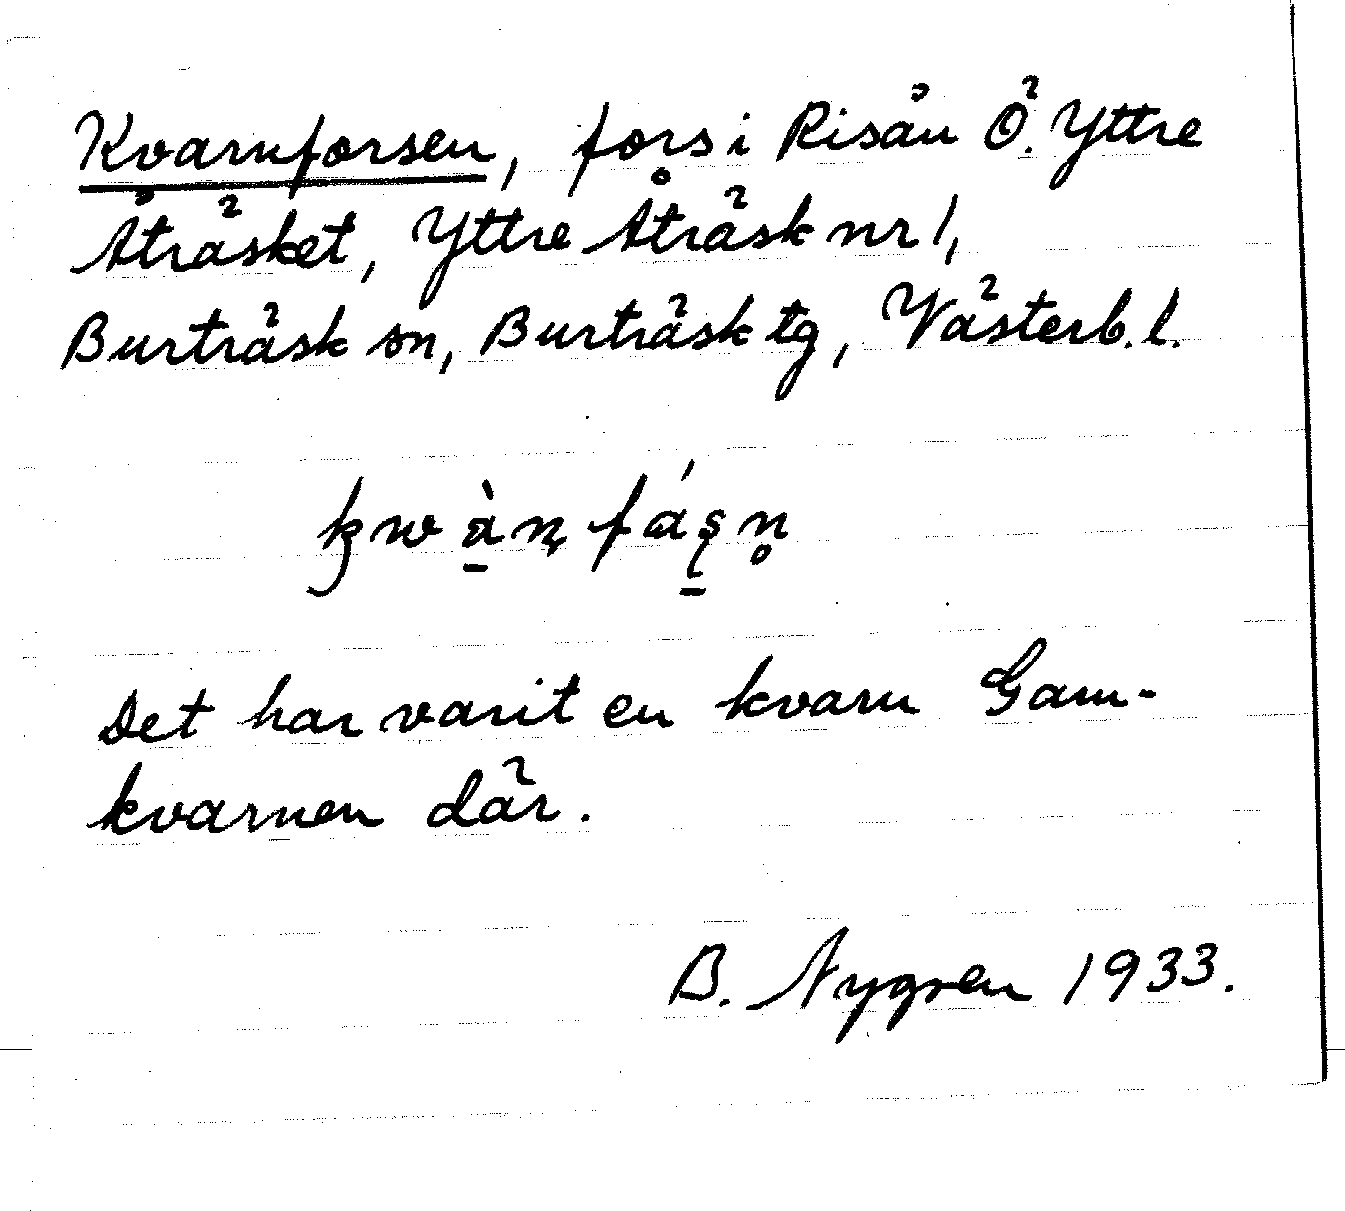 Kvarnforsen, fors i Risån Ö. Yttre
Åträsket, Yttre Åträsk nr 1,
Burträsk sn, Burträsk tg, Västerb. l.
Det har varit en kvarn Gam-
kvarnen där.
B. Nygren 1933.